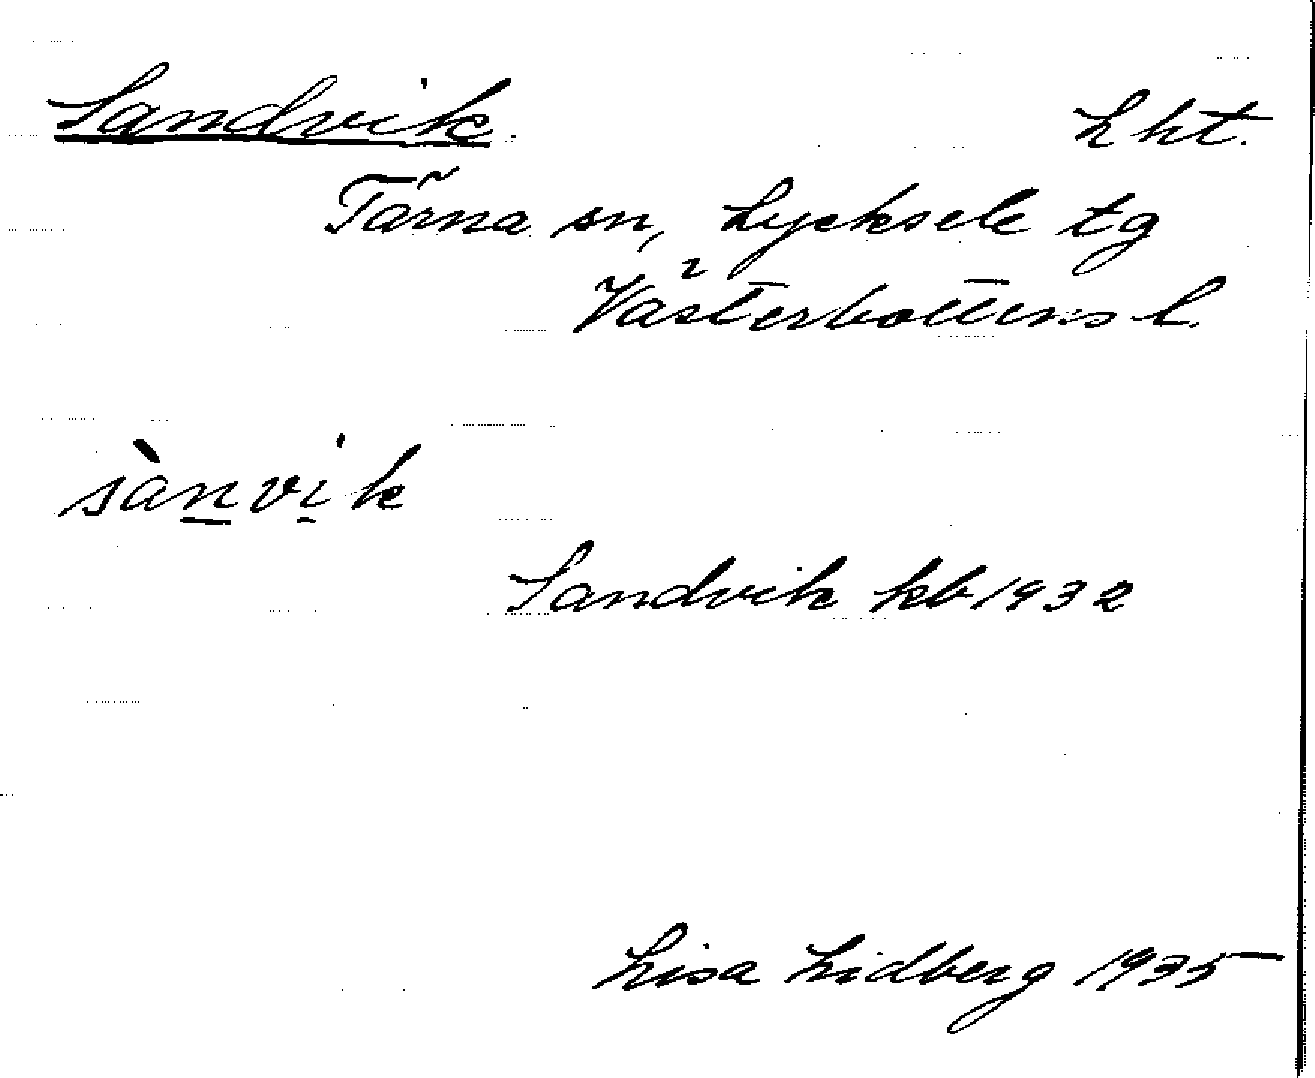 Sandvik. Lht.
Tärna sn, Lycksele tg
Västerbottens l.
sànvik
Sandvik kb 1932
Lisa Lidberg 1935